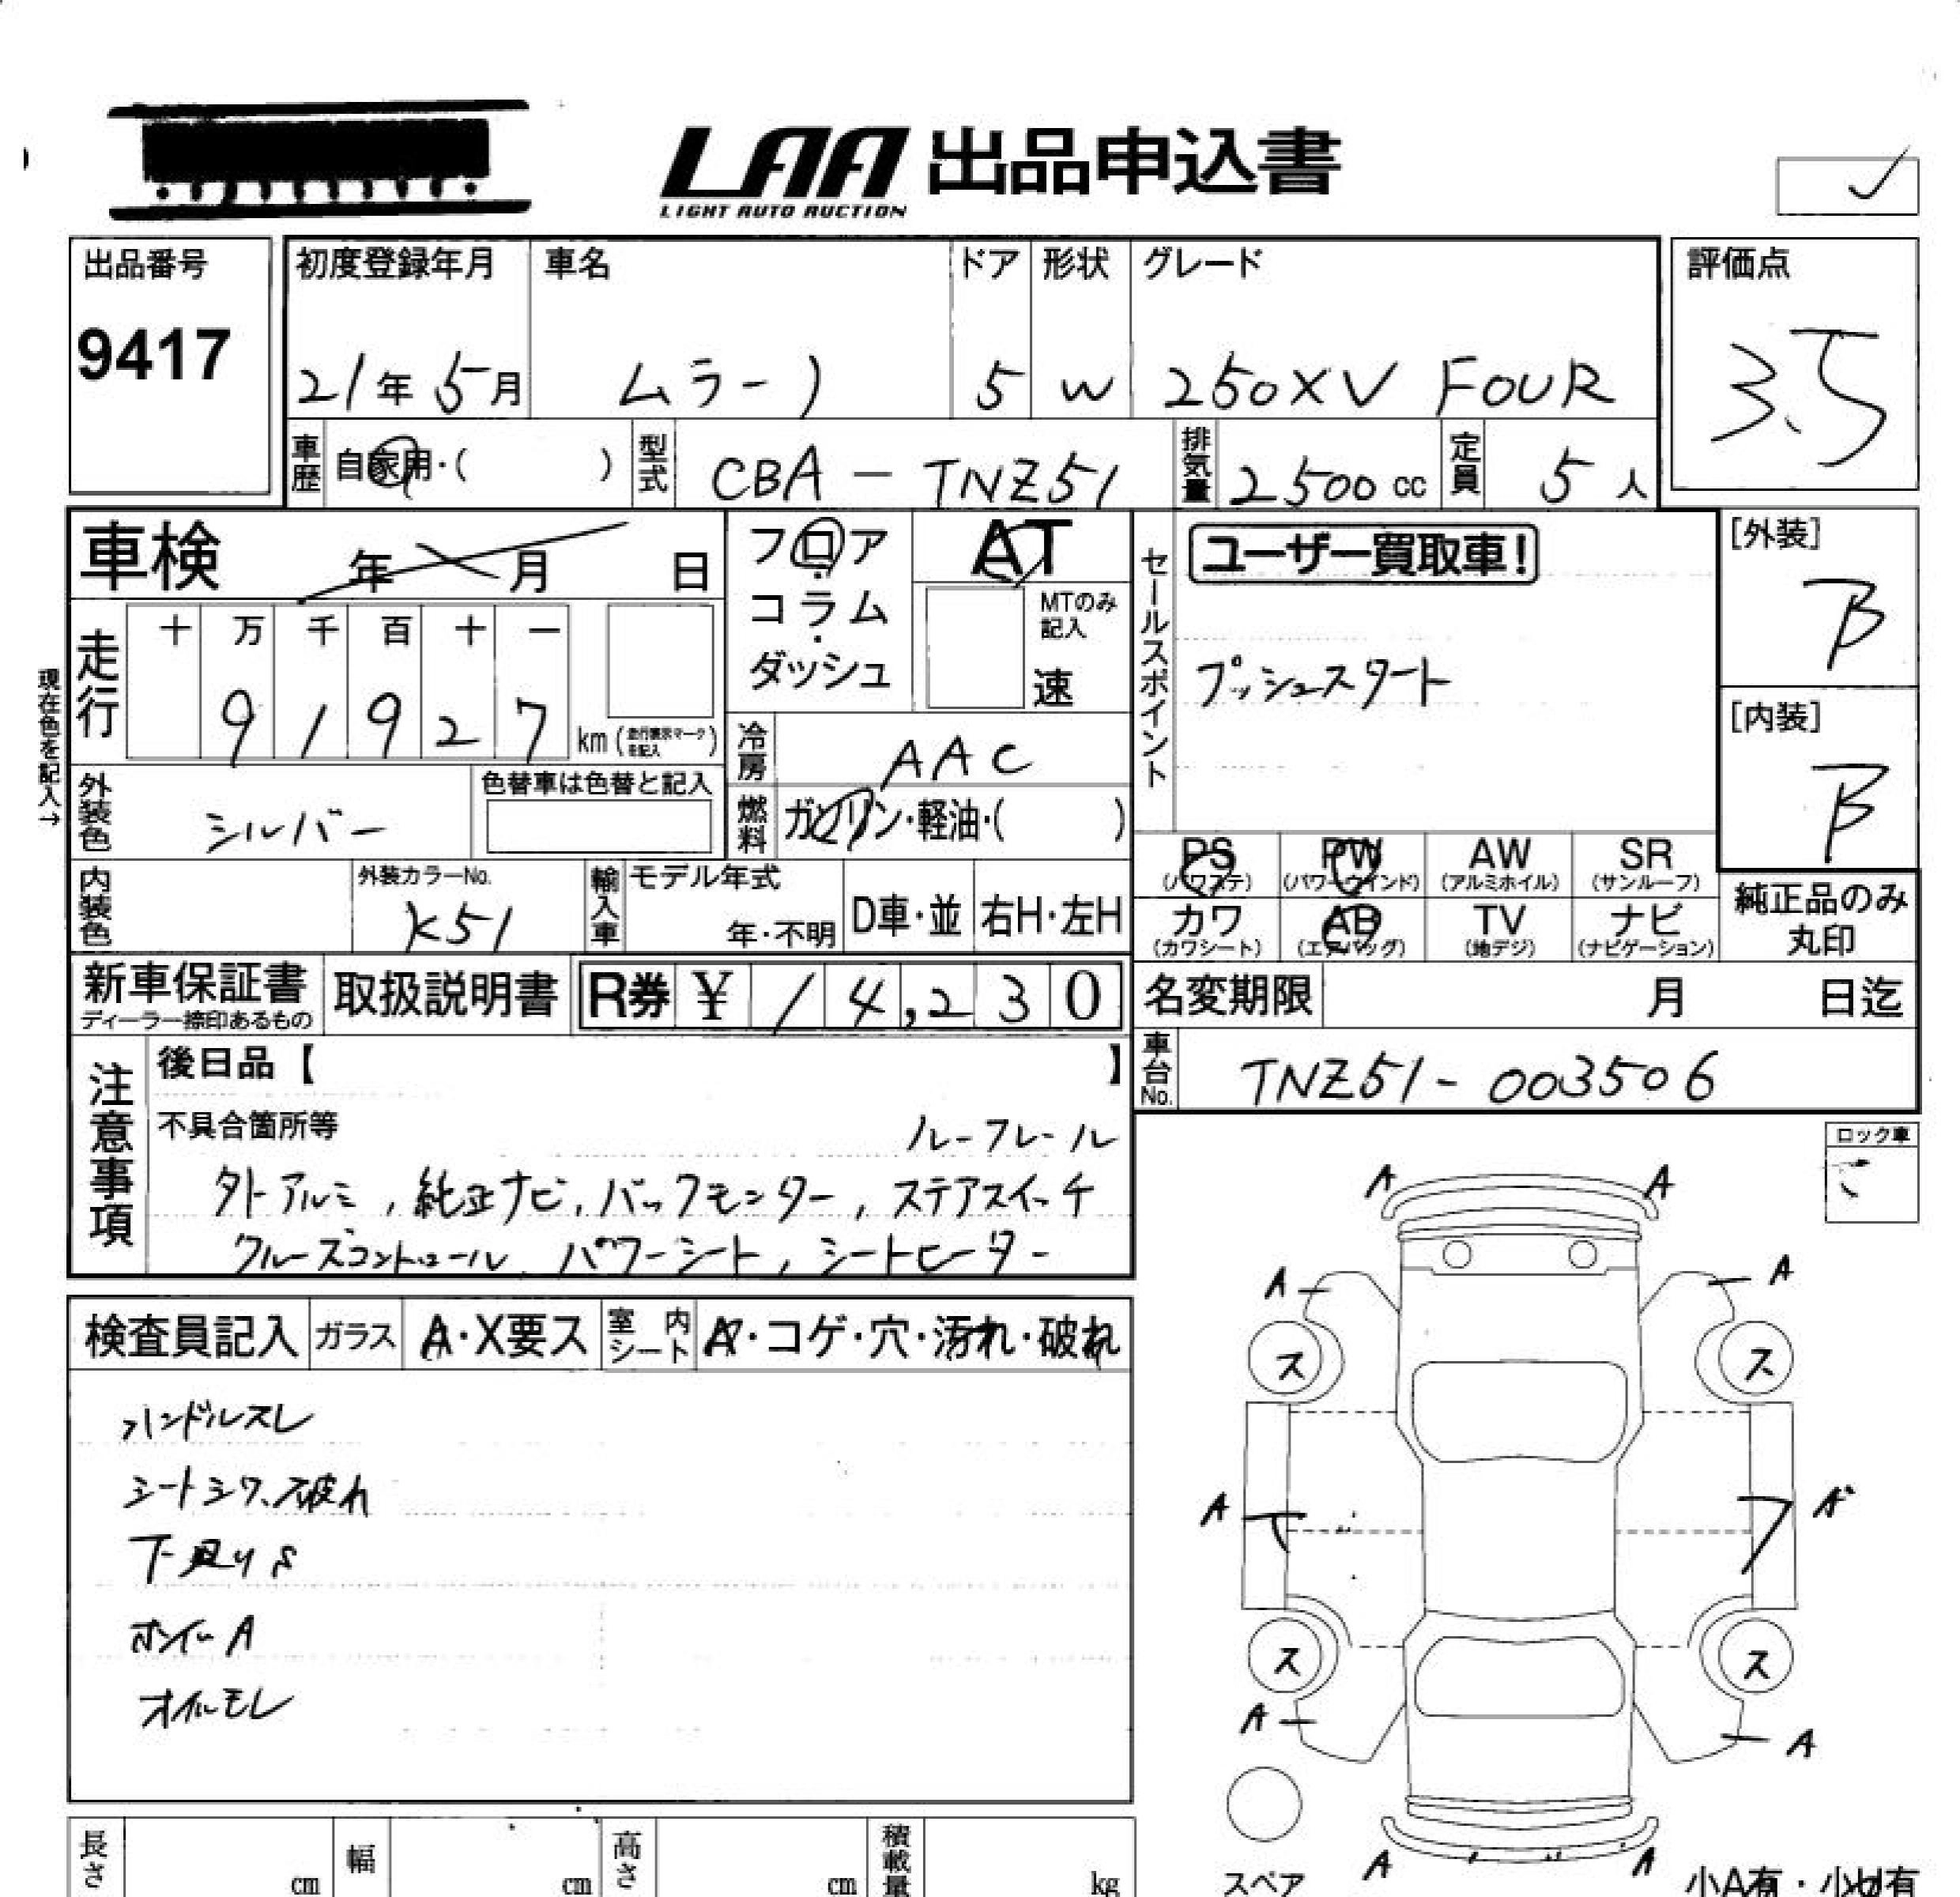 LAA 出品申込書
LIGHT AUTO AUCTION
出品番号
9417
初度登録年月 車名 ドア 形状 グレード
21年 5月 ムラーノ 5 W 250XV FOUR
評価点
3.5
車歴 自家用・( ) 型式 CBA-TNZ51 排気量 2500cc 定員 5人
車検 年 月 日
フロア・コラム・ダッシュ
AT
MTのみ記入
速
セールスポイント
ユーザー買取車!
プッシュスタート
[外装]
B
[内装]
B
現在色を記入→
走行 十 万 千 百 十 一
9 1 9 2 7 km (走行表示マークを記入)
冷房 AAC
外装色 シルバー
色替車は色替と記入
燃料 ガソリン・軽油・( )
PS (パワステ) PW (パワーウインド) AW (アルミホイル) SR (サンルーフ)
カワ (カワシート) AB (エアバッグ) TV (地デジ) ナビ (ナビゲーション)
純正品のみ丸印
内装色
外装カラーNo.
K51
輸入車 モデル年式
年・不明 D車・並 右H・左H
新車保証書
ディーラー捺印あるもの
取扱説明書 R券 ¥ 14,230
名変期限 月 日迄
車台No. TNZ51-003506
注意事項
後日品【 】
不具合箇所等
ルーフレール
外アルミ, 純正ナビ, バックモニター, ステアスイッチ
クルーズコントロール, パワーシート, シートヒーター
ロック車
検査員記入 ガラス A・X要ス 室内シート A・コゲ・穴・汚れ・破れ
ハンドルスレ
シートシワ、破れ
下回りS
ホイールA
オイルモレ
A A
A A
ス ス
A
ス ス
A A
A A
スペア
小A有・小U有
長さ cm 幅 cm 高さ cm 積載量 kg